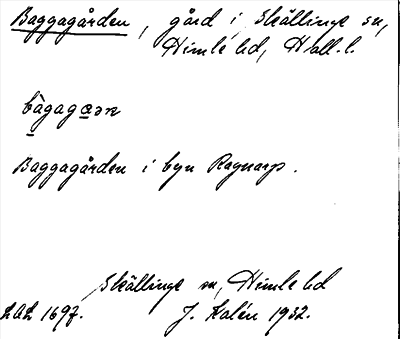 Baggagården, gård i Skällinge sn,
Himle hd, Hall. l.
bàgagɑən
Baggagården i byn Ragnarp.
Skällinge sn, Himle hd
LAL 1697. J. Kalén 1932.